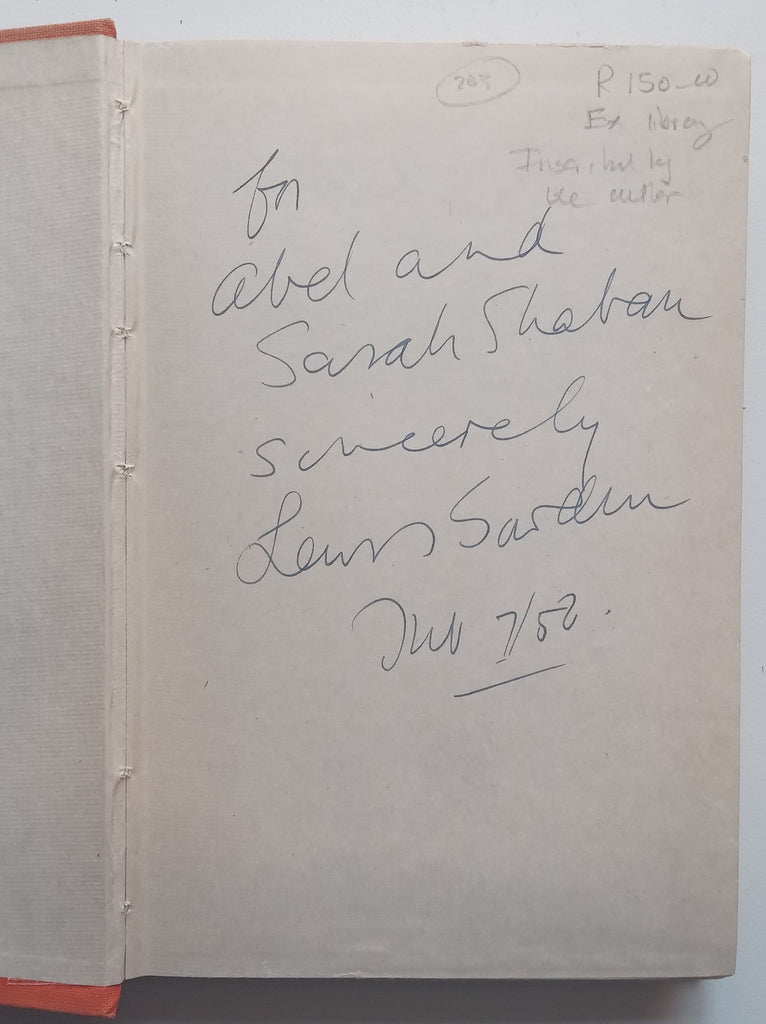 203
R 150-00
Ex library
Inscribed by
the author
for
Abel and
Sarah Shaban
sincerely
Lewis Sowden
7/52.